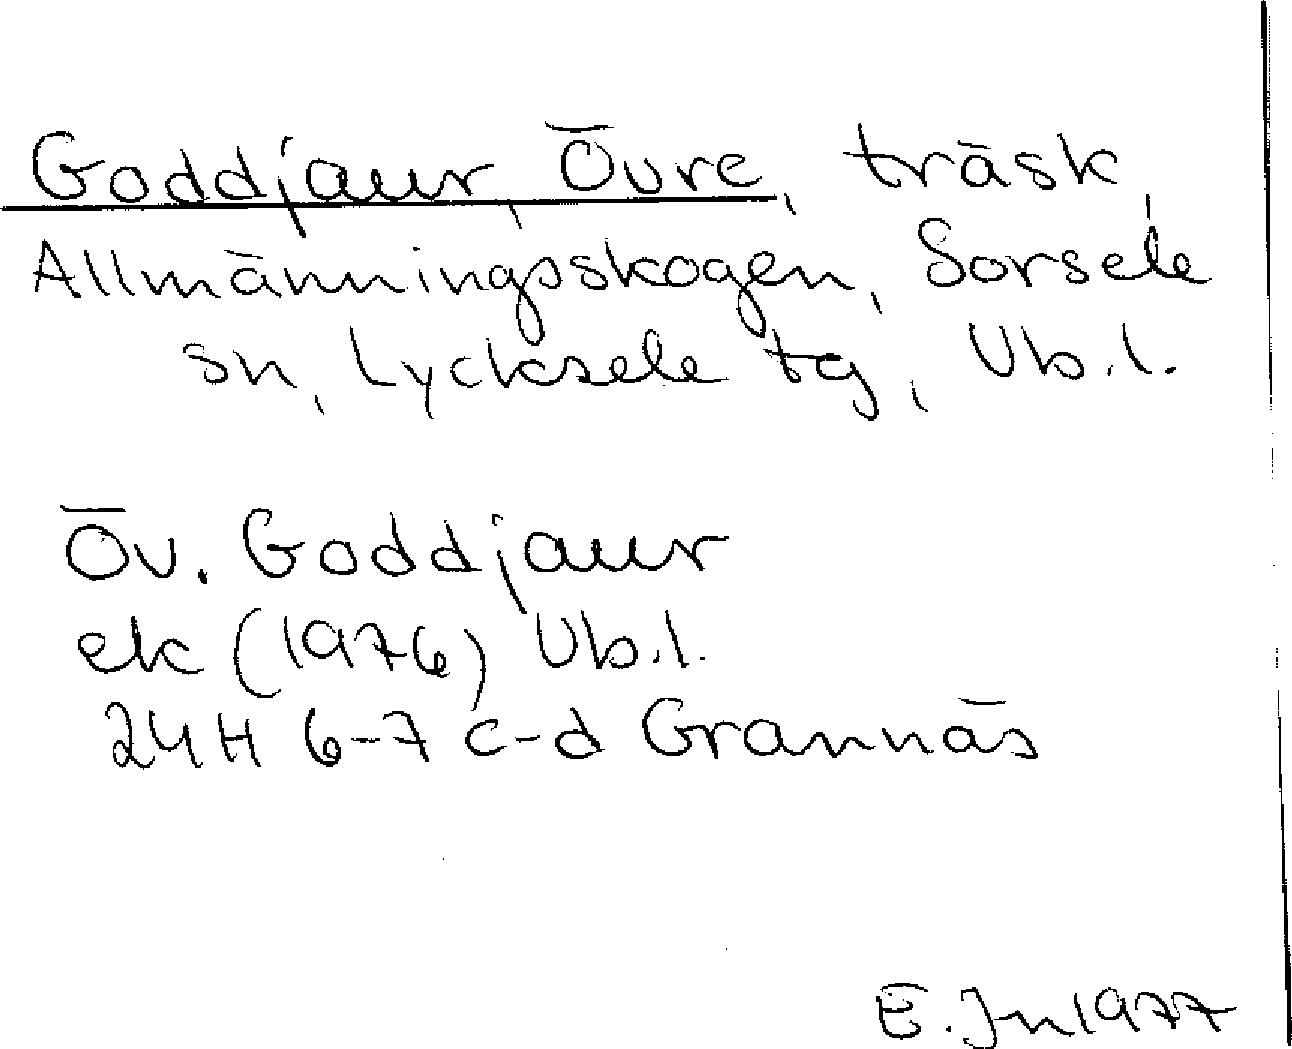 Goddjaur, Övre, träsk,
Allmänningsskogen, Sorsele
sn, Lycksele tg, Vb.l.
Öv. Goddjaur
ek (1976) Vb.l.
24H 6-7 c-d Grannäs
E. Jn 1977